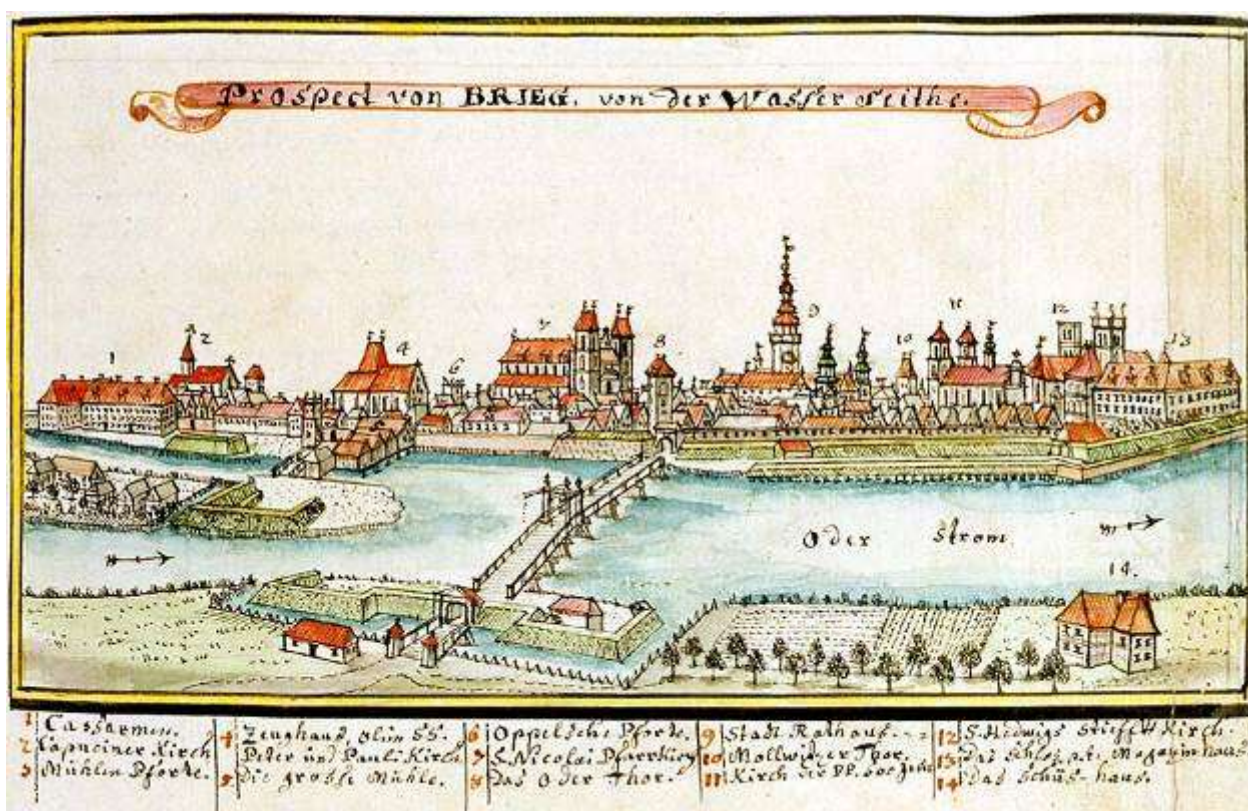 Prospect von BRIEG. von der Wasser seithe.
1
2
4
6
7
8
9
10
11
12
13
Oder Strom.
14.
1 Cassarmen.
2 Capuciner Kirch
3 Mühlen Pforte.
4 Zeughaus, olim SS.
Petri und Pauli Kirch
5 Die grosse Mühle.
6 Oppelsche Pforte.
7 S. Nicolai Pfarrkirch
8 Das Oder Thor.
9 Stadt Rathaus.
10 Mollwitzer Thor.
11 Kirch der PP. Soc Jesu
12 S. Hedwigs Stiefft Kirch.
13 Das Schlos, Magazin haus
14 Das Schüs-haus.